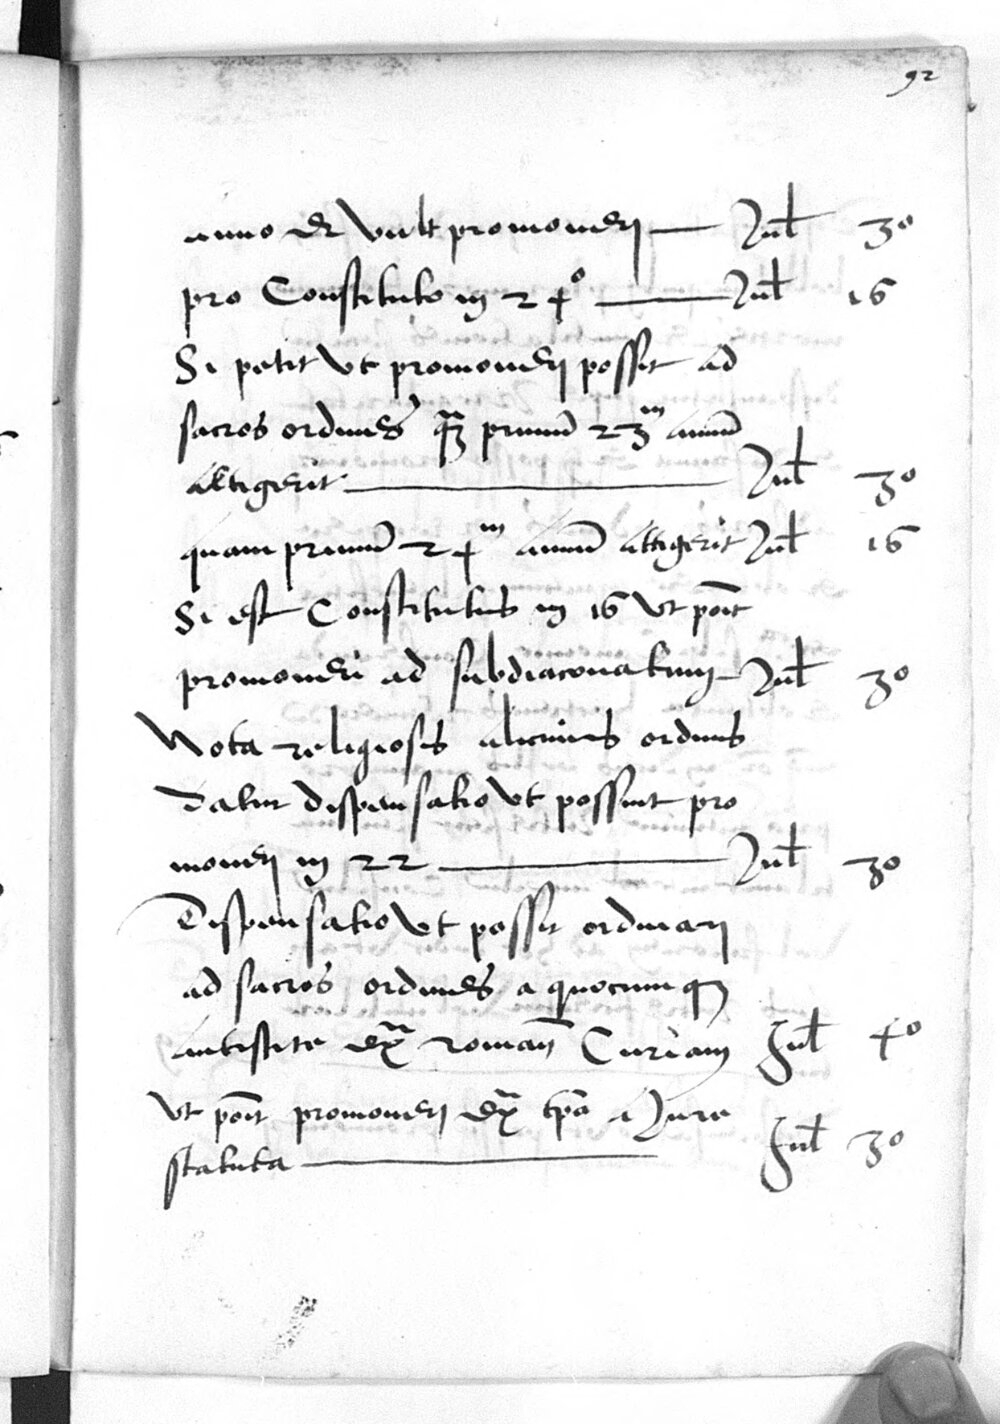 92
anno et vult promoveri — Jul 30
pro Constituto in 24º — Jul 16
Si petit ut promoveri possit ad
sacros ordines q̃ȝ primũ 23m annũ
attigerit — Jul 30
quam primũ 24m annũ attigerit Jul 16
Si est Constitutus in 16 ut põit
promoveri ad subdiaconatum Jul 30
Nota religiosis alicuius ordinis
datur dispensatio ut possint pro
moveri in 22 — Jul 30
Dispensatio ut possit ordinari
ad sacros ordines a quocumqȝ
antistite ex̃ romañ Curiam Jul 40
ut põit promoveri ex̃ tp̃a a Jure
statuta — Jul 30